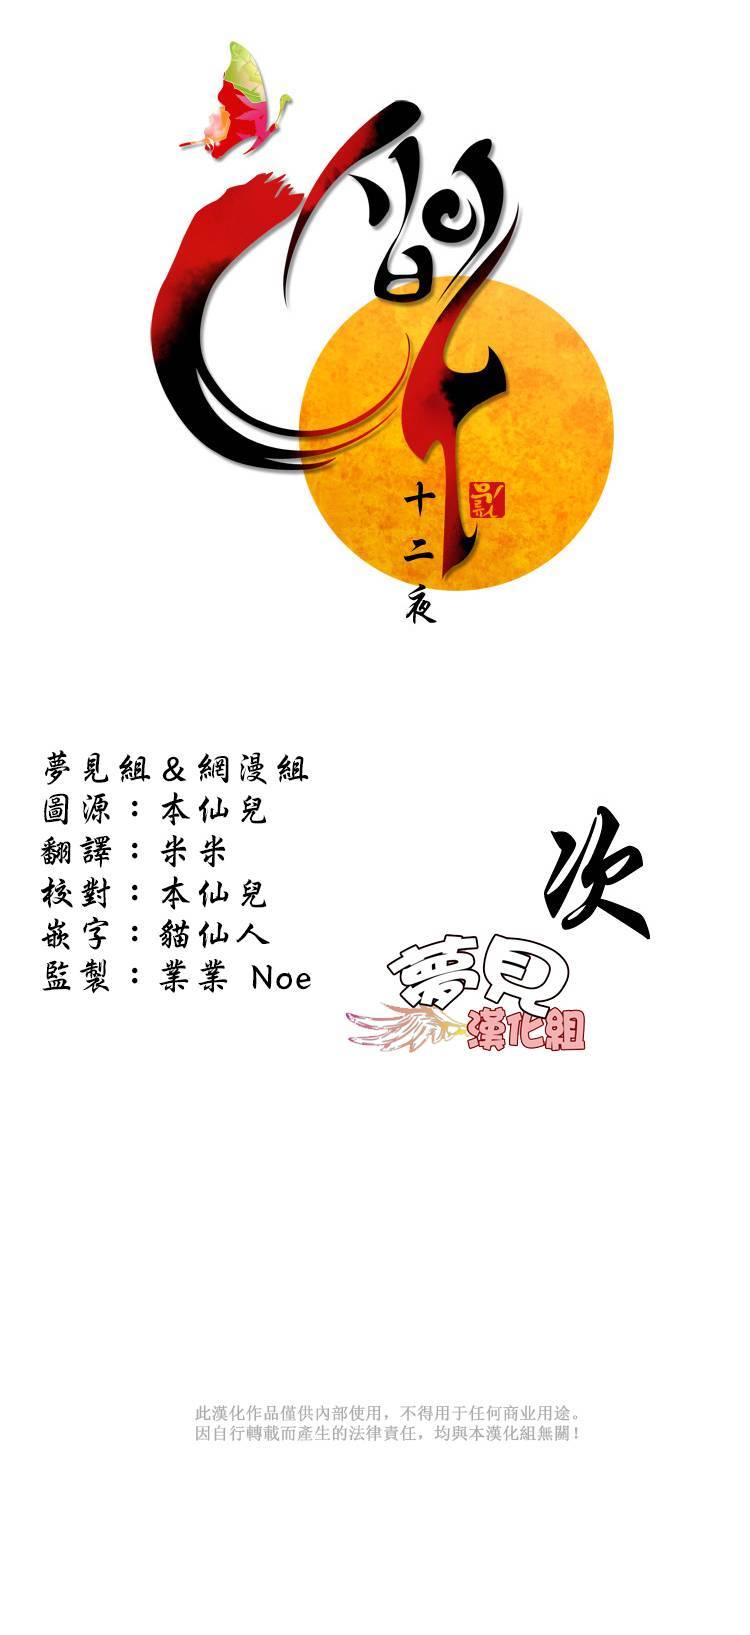 十二夜
夢見組&網漫組
圖源：本仙兒
翻譯：米米
校對：本仙兒
嵌字：貓仙人
監製：業業 Noe
次
夢見
漢化組
此漢化作品僅供內部使用，不得用于任何商业用途。
因自行轉載而產生的法律責任，均與本漢化組無關！